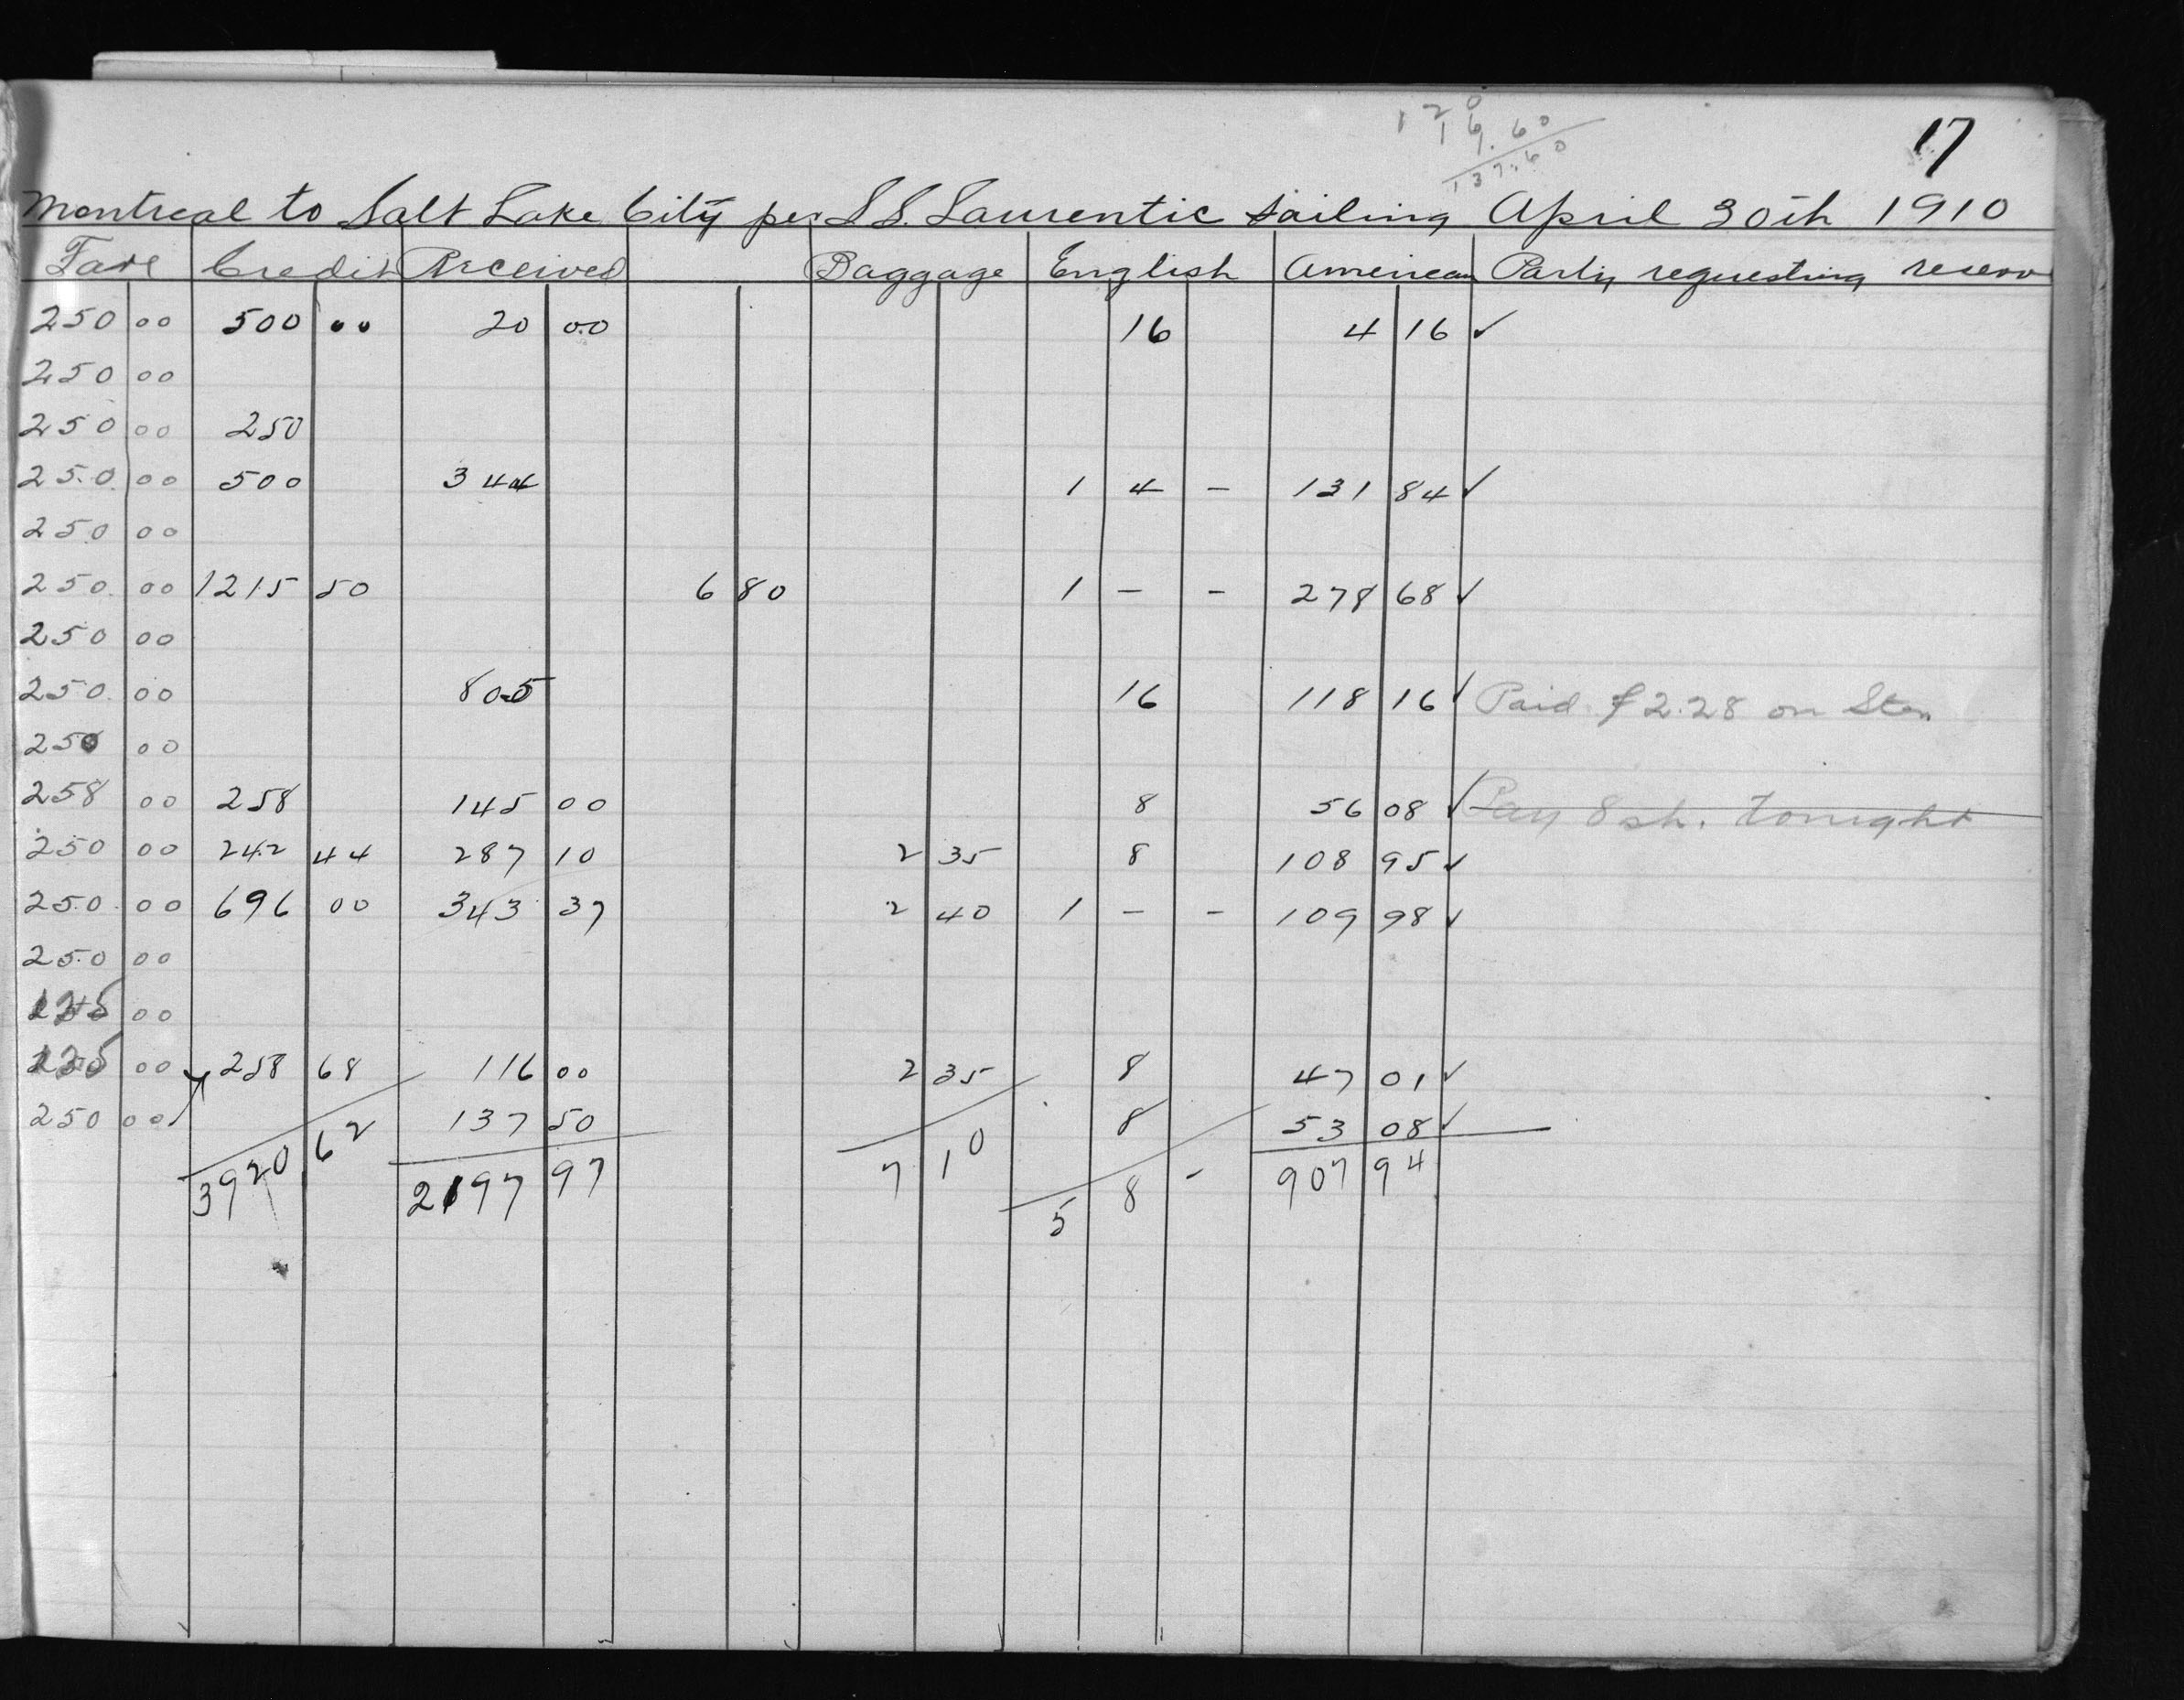 1 2 0
1 6. 60
137.60
17
Montreal to Salt Lake City per S.S. Laurentic sailing April 30th 1910
Fare Credit Received Baggage English American Party requesting reserv
250 00 500 00 20 00 16 4 16 ✓
250 00
250 00 250
250 00 500 344 1 4 - 131 84 ✓
250 00
250 00 1215 50 6 80 1 - - 278 68 ✓
250 00
250 00 805 16 118 16 ✓ Paid $2.28 on
250 00
258 00 258 145 00 8 56 08 ✓ Pay 8 sh. tonight
250 00 242 44 287 10 2 35 8 108 95 ✓
250 00 696 00 343 37 2 40 1 - - 109 98 ✓
250 00
125 00
125 00 258 68 116 00 2 35 8 47 01 ✓
250 00 137 50 8 53 08 ✓
3920 62 2197 97 7 10 5 8 - 907 94